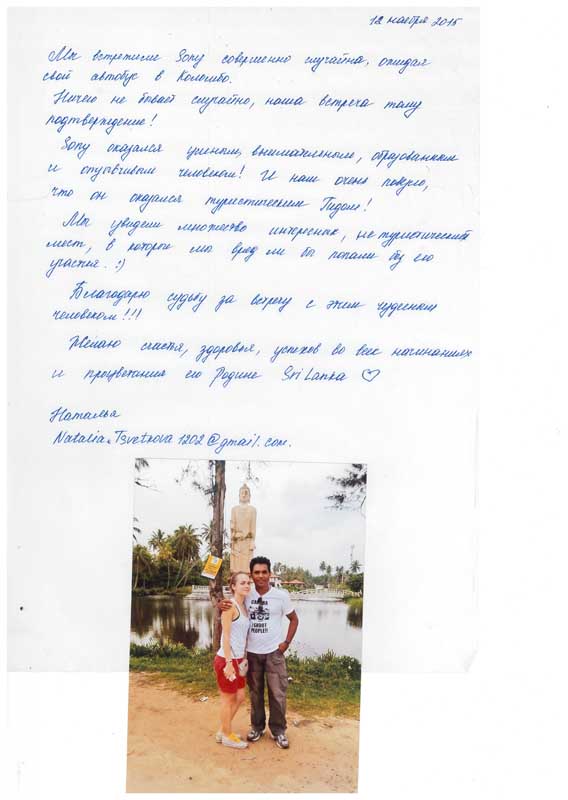 12 ноября 2015
Мы встретили Sony совершенно случайно, ожидая
свой автобус в Коломбо.
Ничего не бывает случайно, наша встреча тому
подтверждение!
Sony оказался умным, внимательным, образованным
и отзывчивым человеком! И нам очень повезло,
что он оказался туристическим Гидом!
Мы увидели множество интересных, не туристических
мест, в которые мы вряд ли бы попали без его
участия. :)
Благодарю судьбу за встречу с этим чудесным
человеком!!!
Желаю счастья, здоровья, успехов во всех начинаниях
и процветания его Родине Sri Lanka ♡
Наталья
Natalia.Tsvetkova1202@gmail.com.
I SHOOT
PEOPLE!!